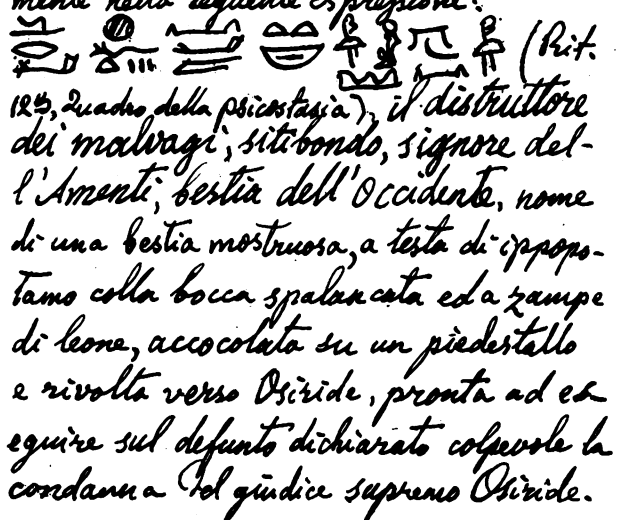 mente nella seguente espressione:
(Rit.
125, Quadro della psicostasia), il distruttore
dei malvagi, sitibondo, signore del-
l'Amenti, bestia dell'Occidente, nome
di una bestia mostruosa, a testa di ippopo-
tamo colla bocca spalancata ed a zampe
di leone, accocolata su un piedestallo
e rivolta verso Osiride, pronta ad es
eguire sul defunto dichiarato colpevole la
condanna del giudice supremo Osiride.